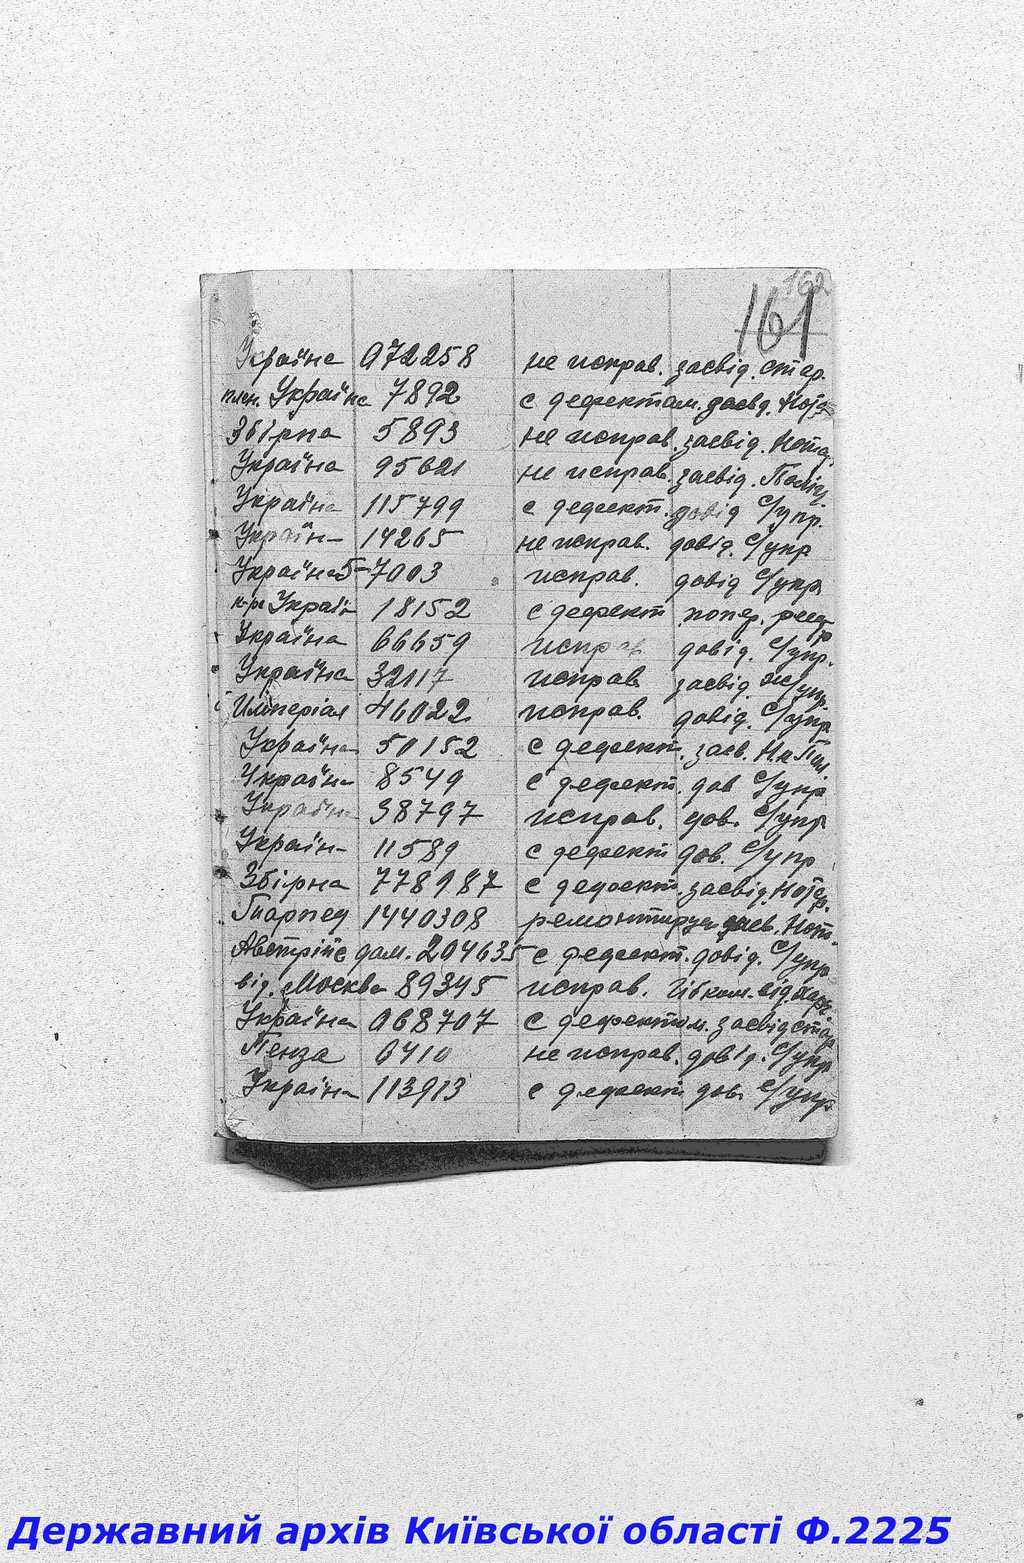 162
161
Україна 072258 не исправ. засвід. стар.
Україна 7892 с дефектам. засвд. Нота
Збірна 5893 не исправ. засвід. Нота
Україна 95621 не исправ. засвід. Поліц.
Україна 115799 с дефект. довід С/упр.
Україн- 14265 не исправ. довід. С/упр
Україна 5-7003 исправ. довід С/упр
Украї 18152 с дефект попер. реєстр
Україна 66659 исправ довід. С/упр.
Україна 32117 исправ засвід Ж/упр.
Имперіал 46022 исправ. довід. С/упр
Україна 50152 с дефект. засв. Н.к Пол.
Україна 8549 с дефект. дов С/упр
Україна 38797 исправ. дов. С/упр
Україн- 11589 с дефект дов. С/упр
Збірна 778987 с дефект. засвід. Нотар.
1440308 ремонтируе засв. Нот.
Австрійс дам. 204635 с дефект. довід. С/упр
від. Москва 89345 исправ. від. Харк.
Україна 068707 с дефектом. засвід стар
Пенза 0410 не исправ. довід. С/упр
Україна 113913 с дефект дов. С/упр
Державний архів Київської області Ф.2225